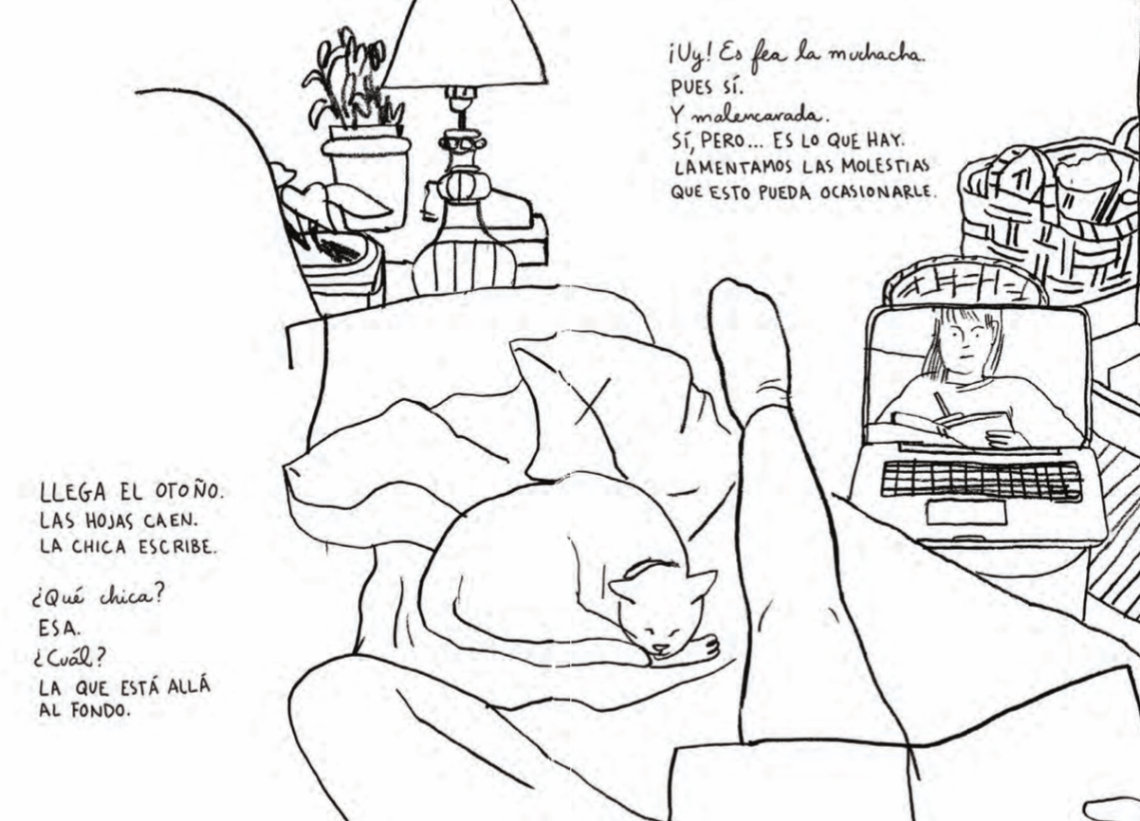 LLEGA EL OTOÑO.
LAS HOJAS CAEN.
LA CHICA ESCRIBE.
¿Qué chica?
ESA.
¿Cuál?
LA QUE ESTÁ ALLÁ
AL FONDO.
¡Uy! Es fea la muchacha.
PUES SÍ.
Y malencarada.
SÍ, PERO... ES LO QUE HAY.
LAMENTAMOS LAS MOLESTIAS
QUE ESTO PUEDA OCASIONARLE.